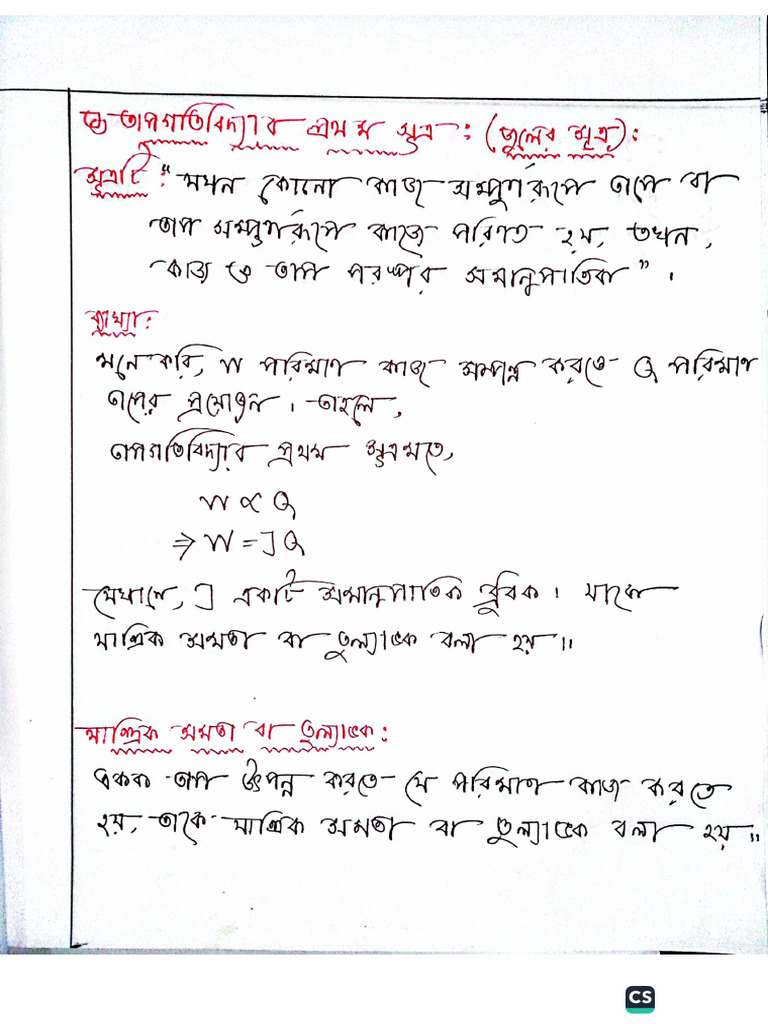 তাপগতিবিদ্যার প্রথম সূত্র : (জুলের সূত্র) :
সূত্রটি : "যখন কোনো কাজ সম্পূর্ণরূপে তাপে বা
তাপ সম্পূর্ণরূপে কাজে পরিণত হয়, তখন,
কাজ ও তাপ পরস্পর সমানুপাতিক" ।
ব্যাখ্যা :
মনে করি, W পরিমাণ কাজ সম্পন্ন করতে Q পরিমাণ
তাপের প্রয়োজন । তাহলে,
তাপগতিবিদ্যার প্রথম সূত্রমতে,
W ∝ Q
⇒ W = J Q
যেখানে, J একটি সমানুপাতিক ধ্রুবক । যাকে
যান্ত্রিক সমতা বা তুল্যাংক বলা হয় ।।
যান্ত্রিক সমতা বা তুল্যাংক :
একক তাপ উৎপন্ন করতে যে পরিমাণ কাজ করতে
হয়, তাকে যান্ত্রিক সমতা বা তুল্যাংক বলা হয় ।।
CS